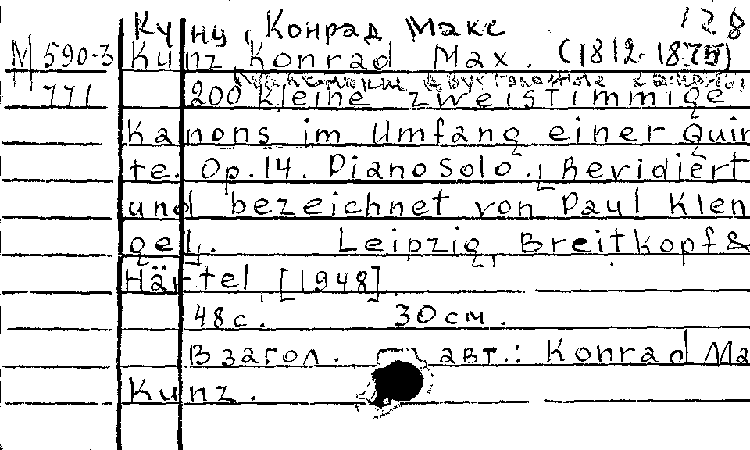 Кунц, Конрад Макс 128
М 590-3 Kunz, Konrad Max. (1812-1875)
771 200 kleine zweistimmige
Kanons im Umfang einer Quin
te. Op. 14. Piano solo. Revidiert
und bezeichnet von Paul Klen
gel. Leipzig, Breitkopf &
Härtel [1948]
48 с. 30 см.
В загол. авт.: Konrad Ma
Kunz.